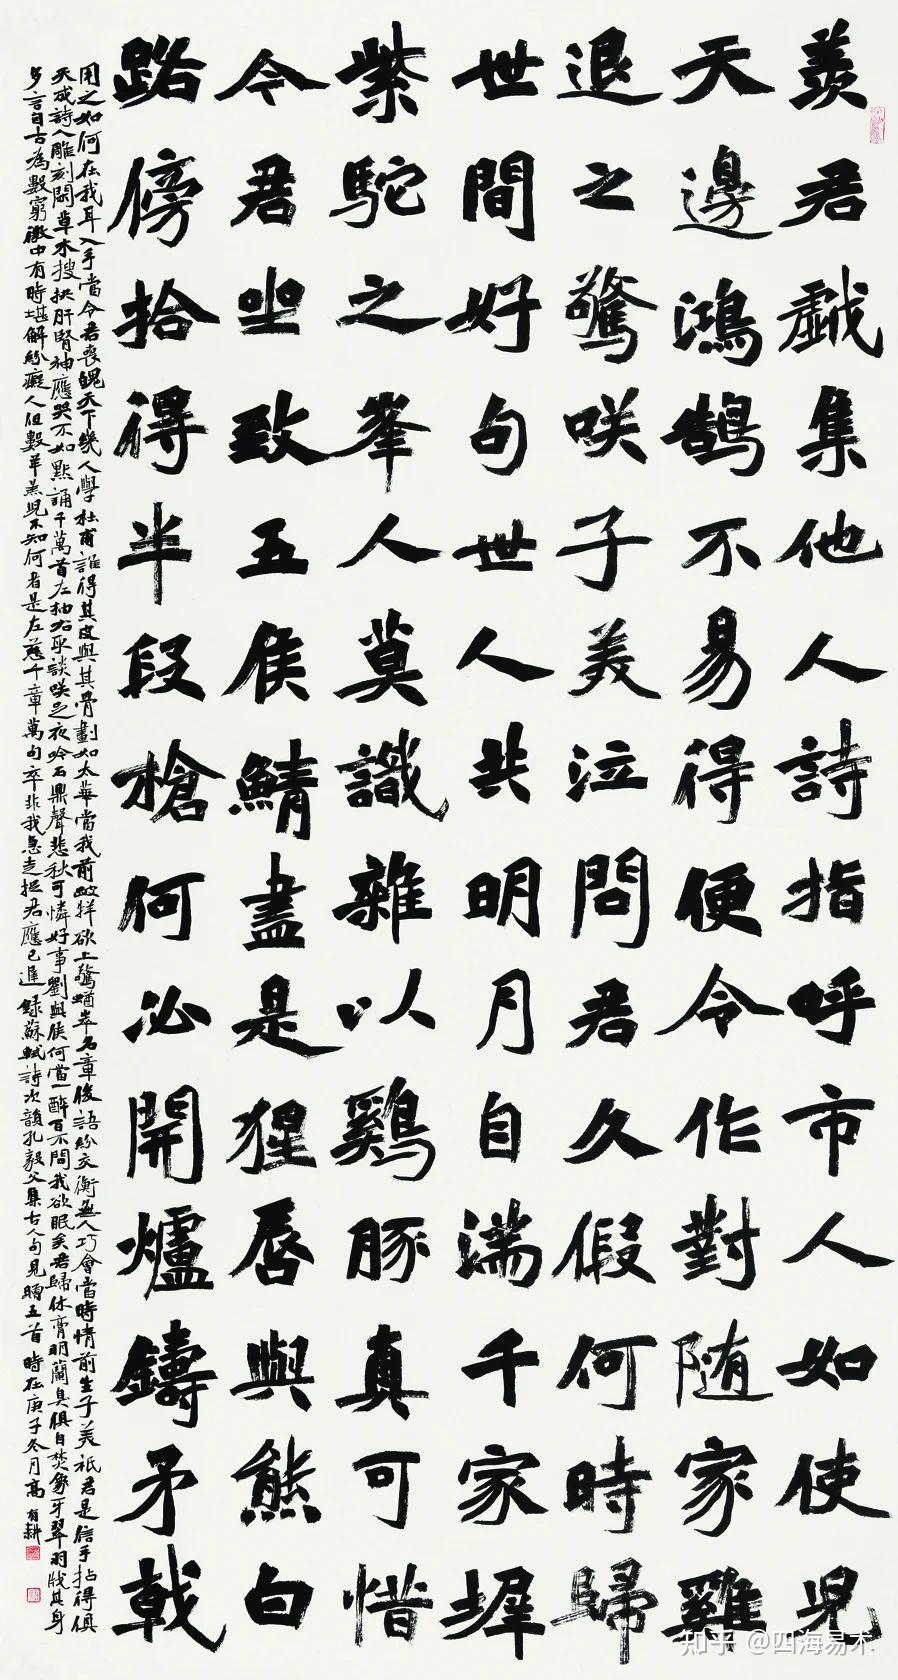 羨君戲集他人詩指呼市人如使兒
天邊鴻鵠不易得便令作對随家雞
退之驚咲子美泣問君久假何時歸
世間好句世人共明月自滿千家墀
紫駝之峯人莫識雜以鷄豚真可惜
今君坐致五侯鯖盡是猩唇與熊白
路傍拾得半段槍何必開爐鑄矛戟
用之如何在我耳入手當令君喪魄天下幾人學杜甫誰得其皮與其骨劃如太華當我前跛牂欲上驚崷崒名章俊語紛交衡無人巧會當時情前生子美祇君是信手拈得俱
天成詩人雕刻閑草木搜抉肝腎神應哭不如默誦千萬首左抽右取談咲足夜吟石鼎聲悲秋可憐好事劉與侯何當一醉百不問我欲眠矣君歸休膏明蘭臭俱自焚象牙翠羽戕其身
多言自古為數窮微中有時堪解紛癡人但數羊羔兒不知何者是左慈千章萬句卒非我急走捉君應已遲 錄蘇軾詩次韻孔毅父集古人句見贈五首 時在庚子冬月高有耕
知乎 @四海易术